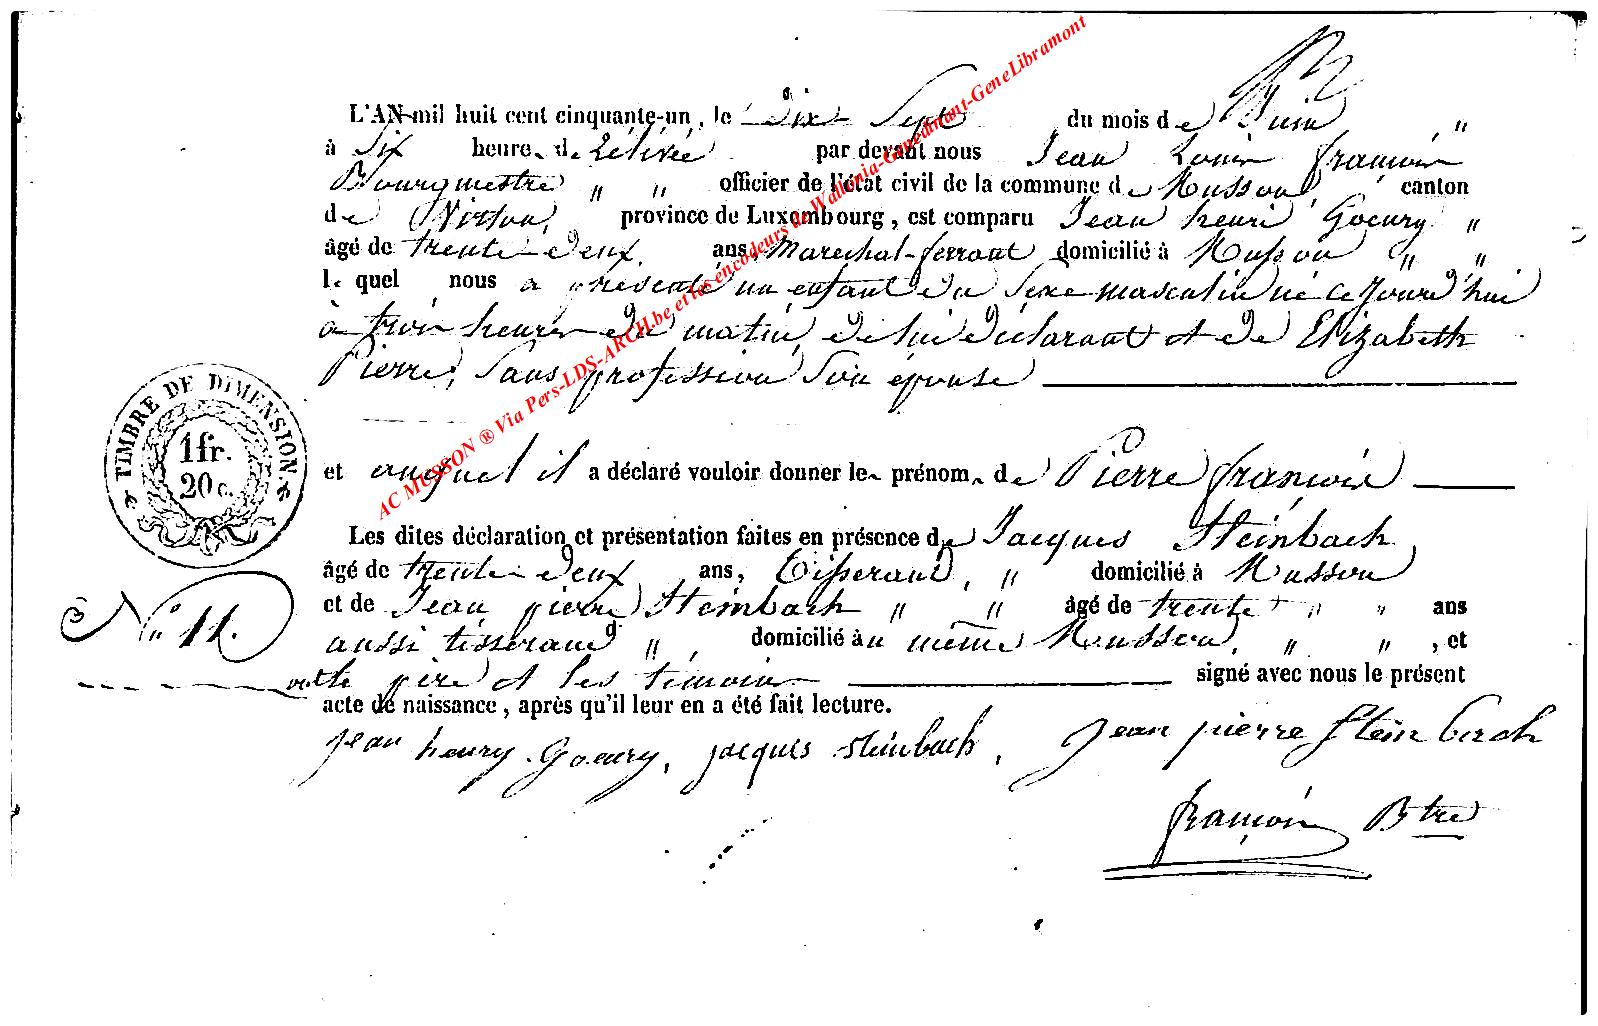 L'AN mil huit cent cinquante-un, le dix Sept du mois de Juin "
à Six heures de Rélévée par devant nous Jean Louis françois
Bourgmestre " " officier de l'état civil de la commune de Musson, canton
de Virton, province de Luxembourg, est comparu Jean henri Goeury "
âgé de trente-deux ans, Marechal-ferrant domicilié à Musson " "
lequel nous a présenté un enfant du Sexe masculin né ce Jourd'hui
à trois heures du matin, de lui déclarant et de Elizabeth
Pierre, Sans profession Son épouse
et auquel il a déclaré vouloir donner les prénoms de Pierre françois
Les dites déclaration et présentation faites en présence de Jacques Steinbach
âgé de trente-deux ans, Tisserand, " domicilié à Musson
et de Jean pierre Steinbach " " âgé de trente " " ans
aussi tisserand ", domicilié au même Musson, " ", et
ont le père et les témoins signé avec nous le présent
acte de naissance, après qu'il leur en a été fait lecture.
jean henry Goeury, jacques steinbach, Jean pierre Steinbach
françois Btre
TIMBRE DE DIMENSION.
1fr.
20 c.
N° 11.
AC MUSSON ® Via Pers-LDS-ARCH.be et les encodeurs de Wallonia-Genedinant-GeneLibramont